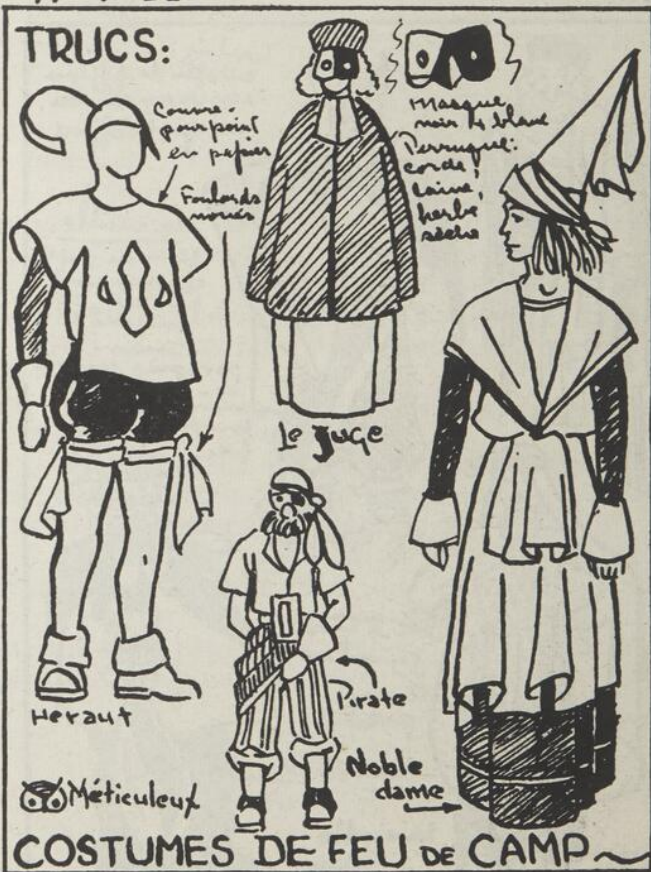 TRUCS:
Couvre-
pourpoint
en papier
Foulards
noués
Masque
noir & blanc
Perruque:
corde,
laine,
herbe
sèche
Le Juge
Heraut
Pirate
Noble
dame
Méticuleux
COSTUMES DE FEU DE CAMP